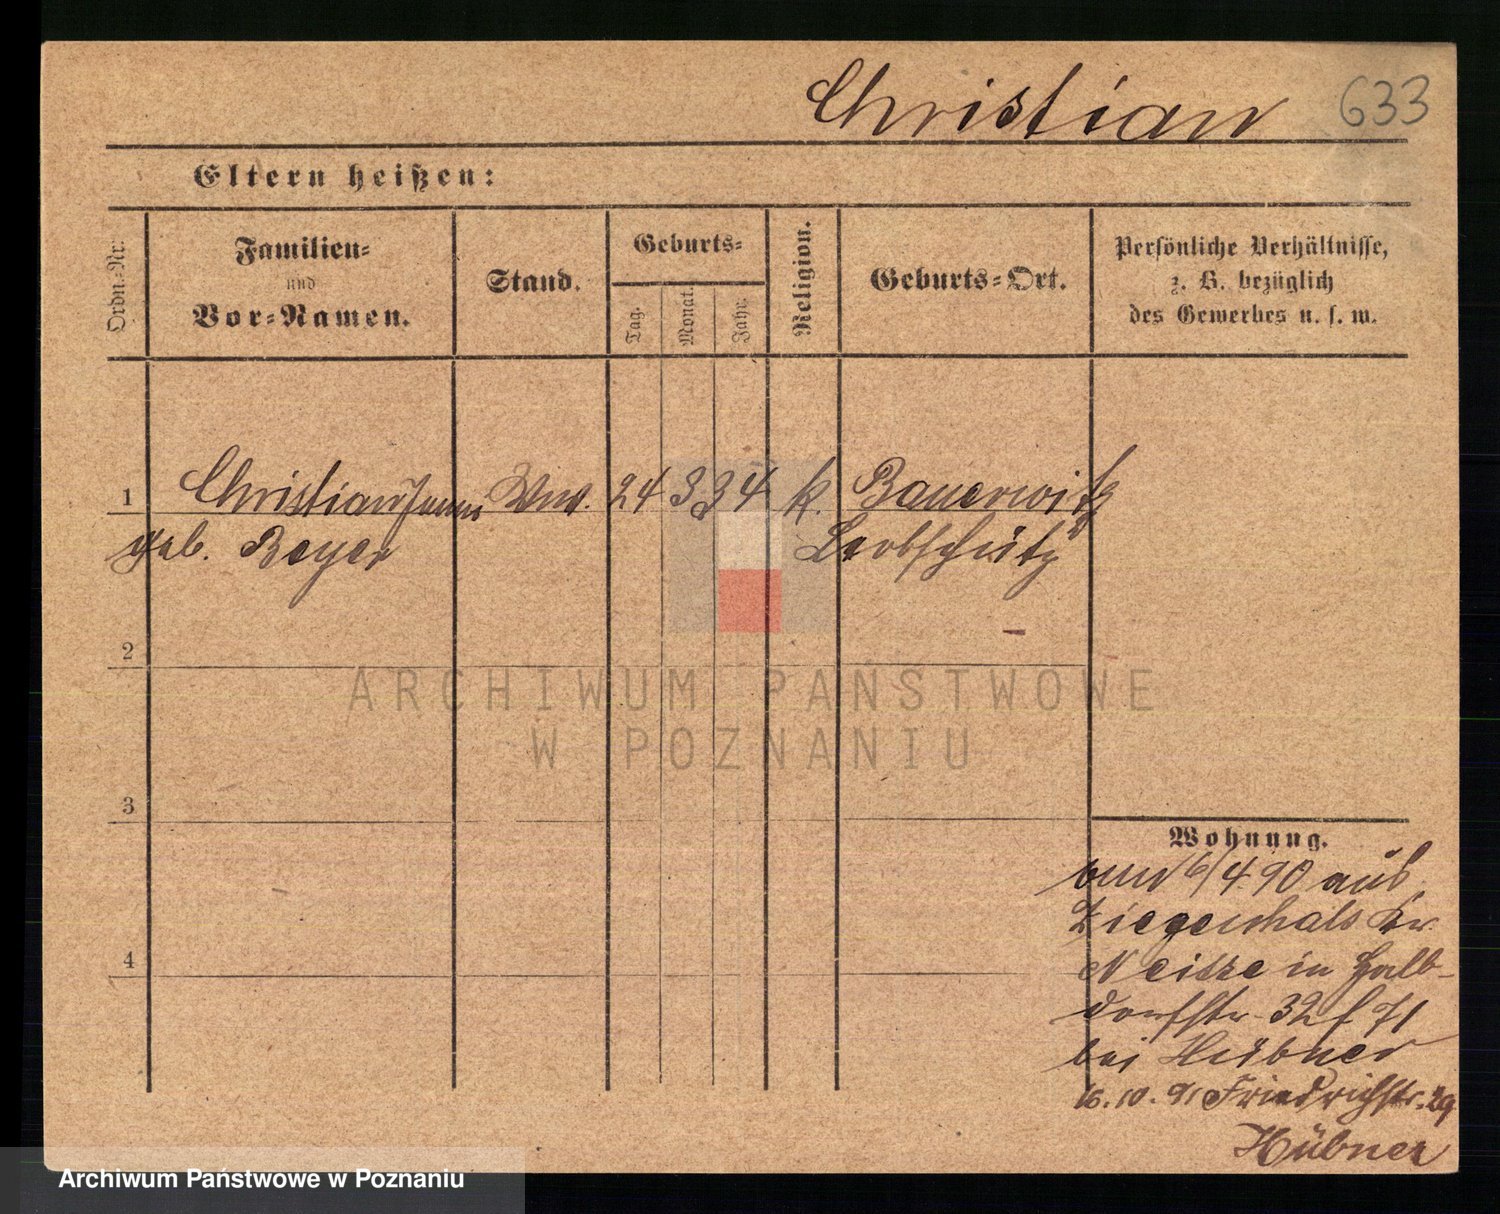 Christian 633
Eltern heißen:
Ordn.-Nr:
Familien-
und
Vor-Namen.
Stand.
Geburts-
Tag.
Monat.
Jahr.
Religion.
Geburts-Ort.
Persönliche Verhältnisse,
z. B. bezüglich
des Gewerbes u. s. w.
1 Christian Wwe. 24 3 34 k. Bauerwitz
geb. Beyer Leobschütz
2
3
4
ARCHIWUM PAŃSTWOWE
W POZNANIU
Wohnung.
6/4 90 aus
Ziegenhals Kr.
Neisze in Halb-
dorfstr. 32 f 71
bei Hübner
16. 10. 91 Friedrichstr. 29
Hübner
Archiwum Państwowe w Poznaniu